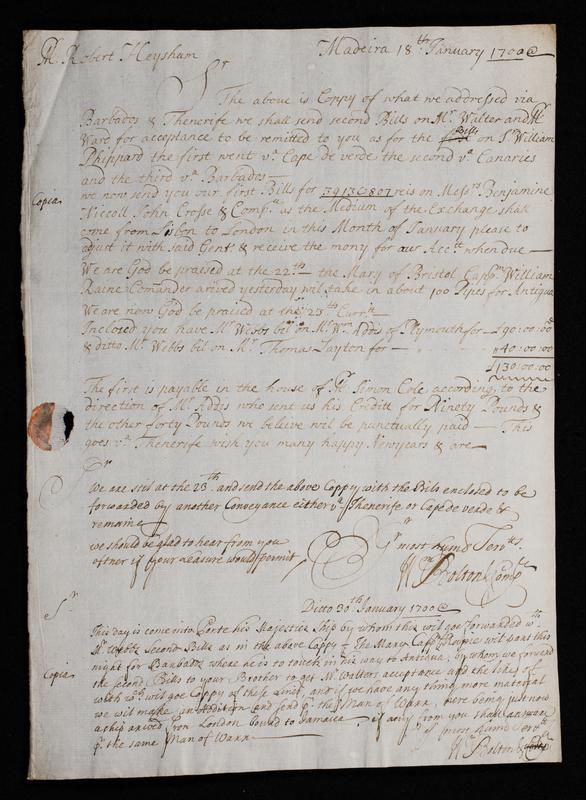 Mr. Robert Heysham
Madeira 18th January 1700
Sr
The above is Coppy of what we addressed via
Barbados & Thenerife we shall send second Bills on Mr. Walter and Mr
Ware for acceptance to be remitted to you as for the Bills on Sr William
Phippard the first went va. Cape de verde the second va Canaries
and the third va Barbados —
Copia
we now send you our first Bills for reis on Messrs Benjamine
Niccoll John Crosse & Compa. as the Medium of the Exchange shall
come from Lisbon to London in this Month of January please to
ajust it with said Gent. & receive the mony for our Acctt when due —
We are God be praised at the 22th — the Mary of Bristol Cappn William
Raine Comander arived yesterday wil take in about 100 Pipes for Antigua
We are now God be praised at the 23th Currtt —
Inclosed you have Mr Webbs bil on Mr Wm Addis of Plymouth for — £90:00:00
& ditto Mr. Webbs bil on Mr. Thomas Layton for — 40:00:00
£130:00:00
The first is payable in the house of Simon Cole according to the
direction of Mr Addis who sent us his Creditt for Ninety Pounds &
the other forty Pounds we beleive wil be punctually paid — This
goes va. Thenerife wish you many happy Newyears & are —
Sr
We are stil at the 23th and send the above Coppy with the Bils enclosed to be
forwarded by another Conveyance either va. Thenerife or Cape de verde &
remaine
we should be glad to hear from you
oftner if your Leasure would permit
Yr most humb Servts.
Wm Bolton & Compa
Ditto 30th January 1700
Sr.
This day is come into Porte his Majesties Ship by whom this wil goe forwarded wth
Mr. Webbs Second Bills as in the above Coppy — The Mary Cappn Raine wil want this
night for Barbados where he is to touch in his way to Antigua, by whom we forward
Copia
the second Bills to your Brother to get Mr. Walters acceptance and the likes of
with wch wil goe Coppy of these Lines, and if we have any thing more material
we wil make an Addition and send pr the Man of Warr, here being just now
a ship arived from London bound to Jamaica if any from you shall answer
pr. the same Man of Warr —
Yr most humb Servtts
Wm Bolton & Compa